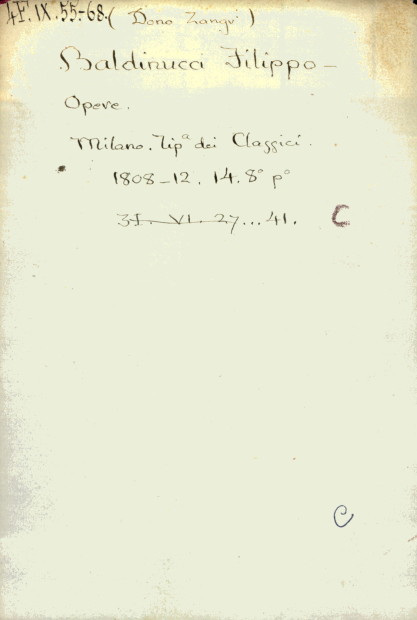 4F.IX.55-68. (Dono Zangri)
Baldinucci Filippo -
Opere.
Milano. Tipª dei Classici.
1808-12. 14. 8° p°
31. VI. 27...41. C
C